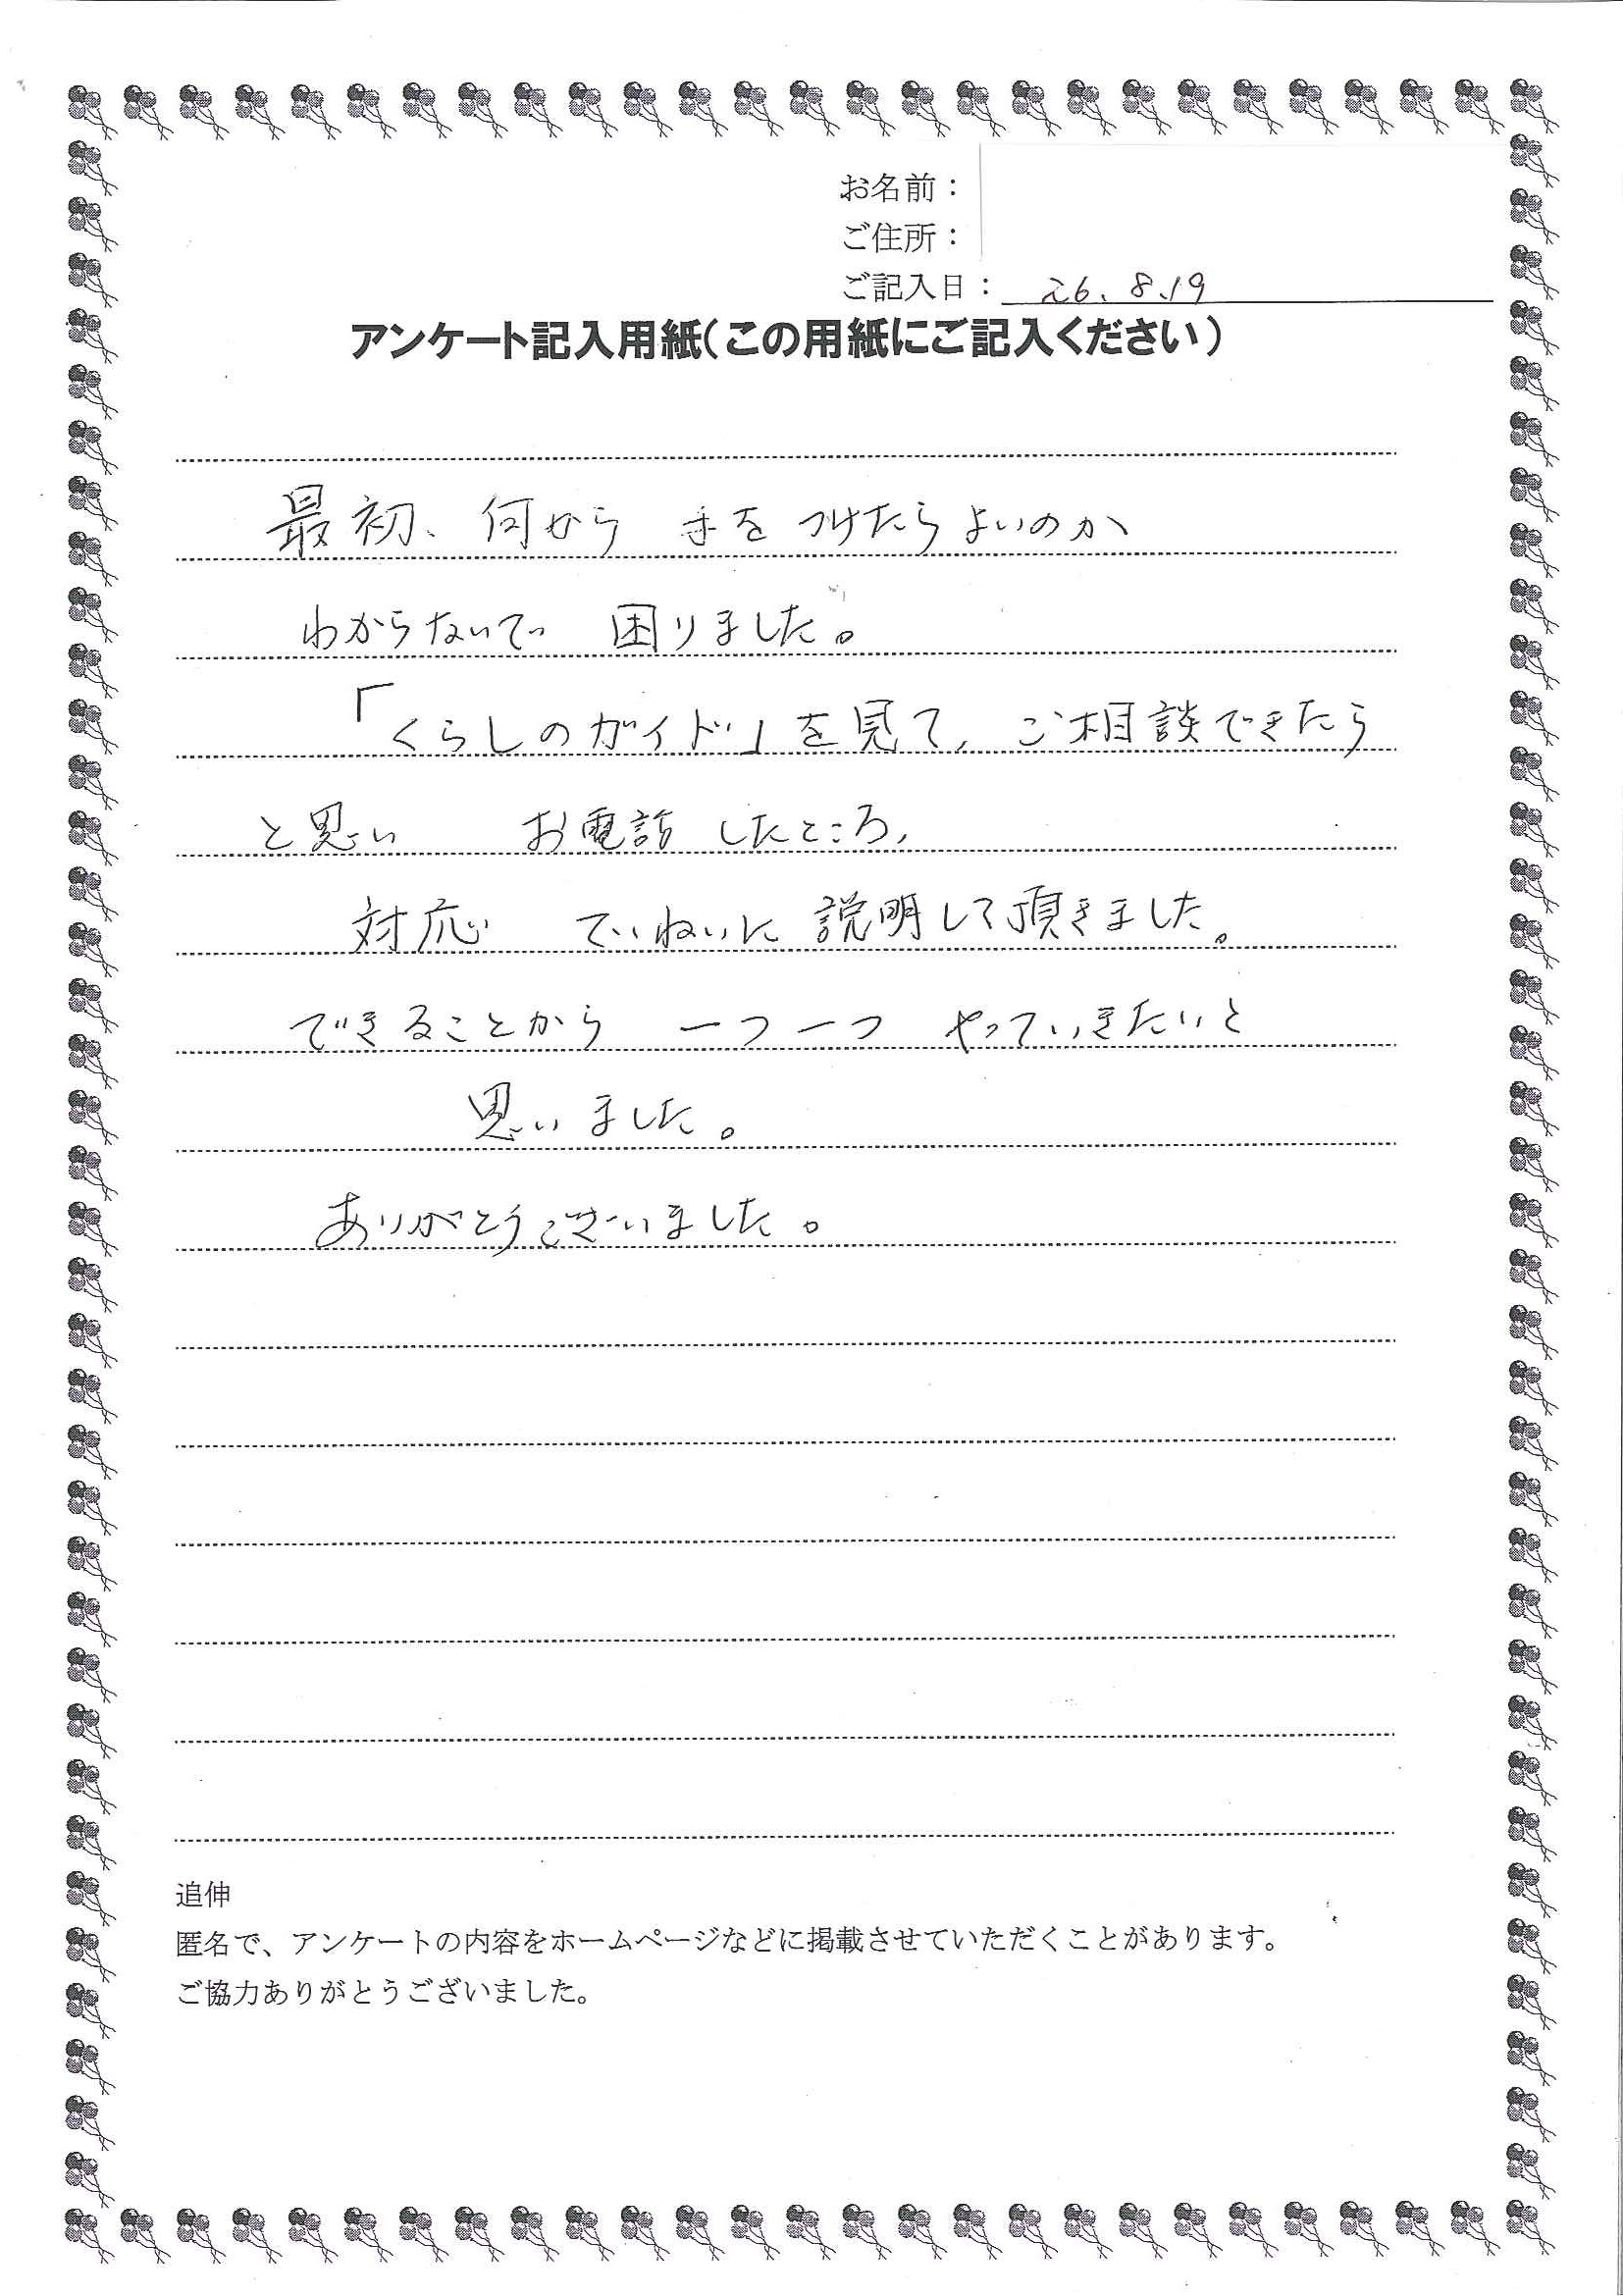 お名前：
ご住所：
ご記入日： 26.8.19
アンケート記入用紙（この用紙にご記入ください）
最初、何から 手を つけたらよいのか
わからないで 困りました。
「くらしのガイド」を見て、ご相談できたら
と思い お電話 したところ、
対応 ていねいに 説明して頂きました。
できることから 一つ一つ やっていきたいと
思いました。
ありがとうございました。
追伸
匿名で、アンケートの内容をホームページなどに掲載させていただくことがあります。
ご協力ありがとうございました。